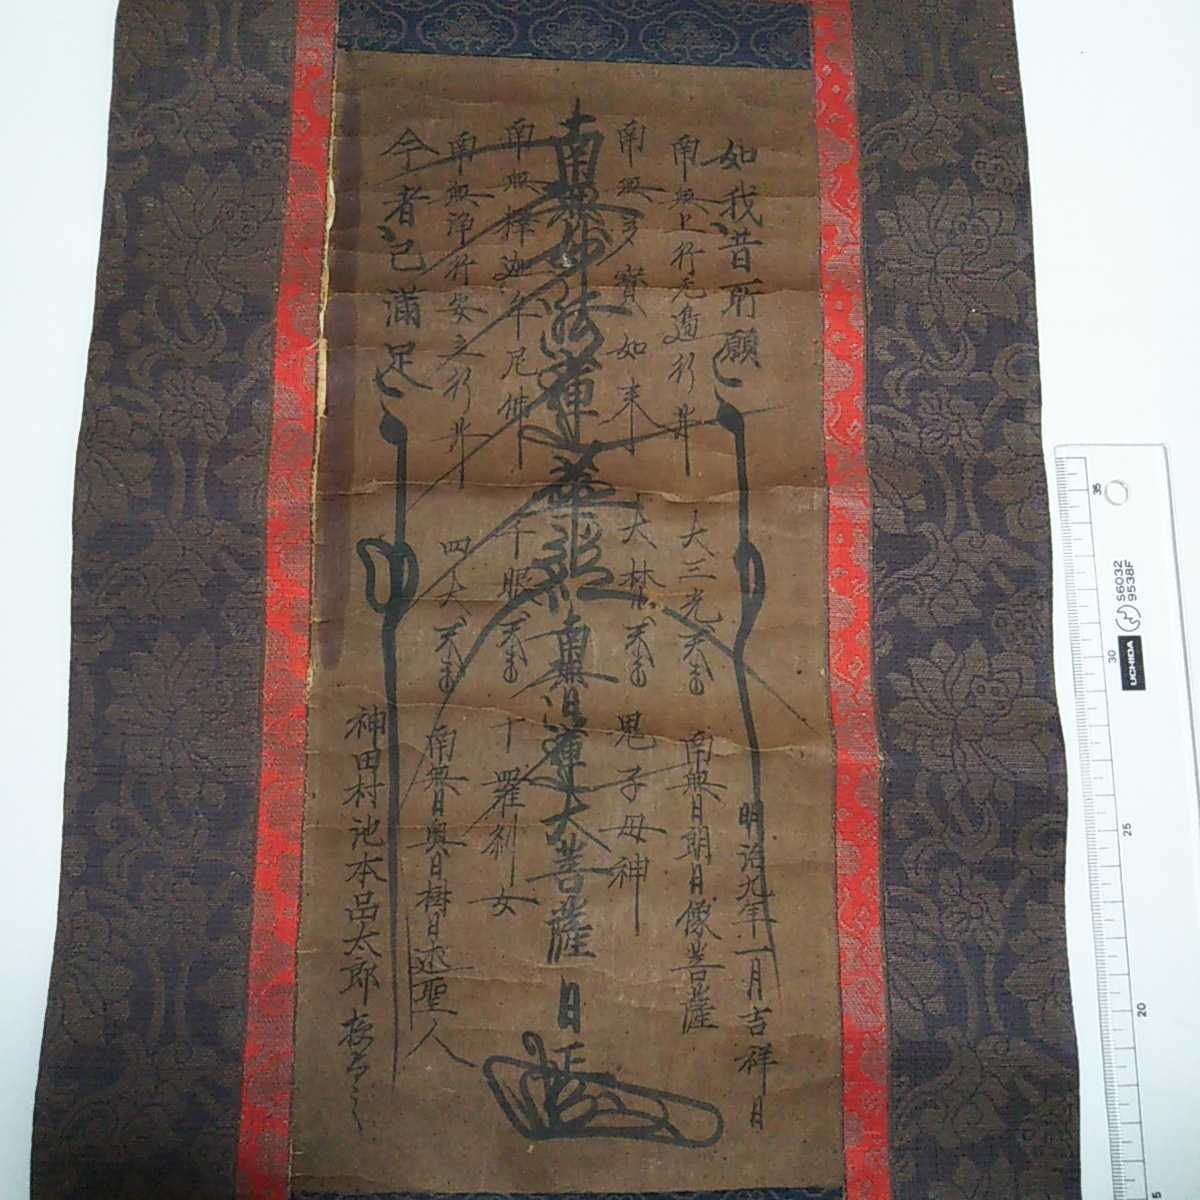 如我昔所願
明治九年一月吉祥日
南無上行无邉行井
大三光天王
南無日朗日像菩薩
南無多寳如来
大梵天王
鬼子母神
南無妙法蓮華経
南無日蓮大菩薩
日
南無釋迦牟尼佛
十羅刹女
南無浄行安立行井
四大天王
南無日興日樹日述聖人
今者已満足
神田村池本
太郎
35
30
25
20
S6032
9538F
UCHIDA